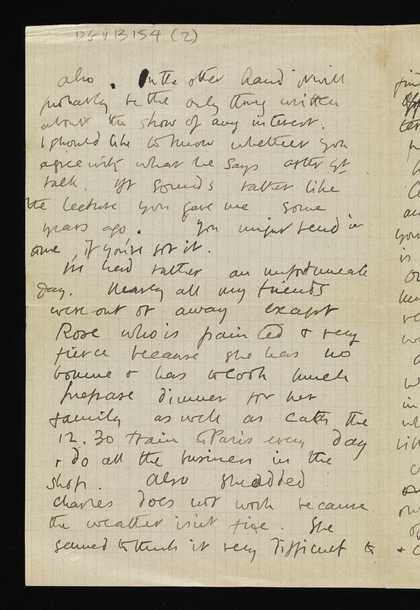 (2)
also. On the other hand it will
probably be the only thing written
about the show of any interest.
I should like to know whether you
agree with what he says after yr
talk. It sounds rather like
the lecture you gave me some
years ago. You might send it
one, if you've got it.
We had rather an unfortunate
day. Nearly all my friends
were out or away except
Rose who is painted & very
fierce because she has no
bonne & has to cook lunch
prepare dinner for her
family as well as catch the
12.30 train to Paris every day
& do all the business in the
shop. Also she added
Charles does not work because
the weather isn't fine. She
seemed to think it very difficult to